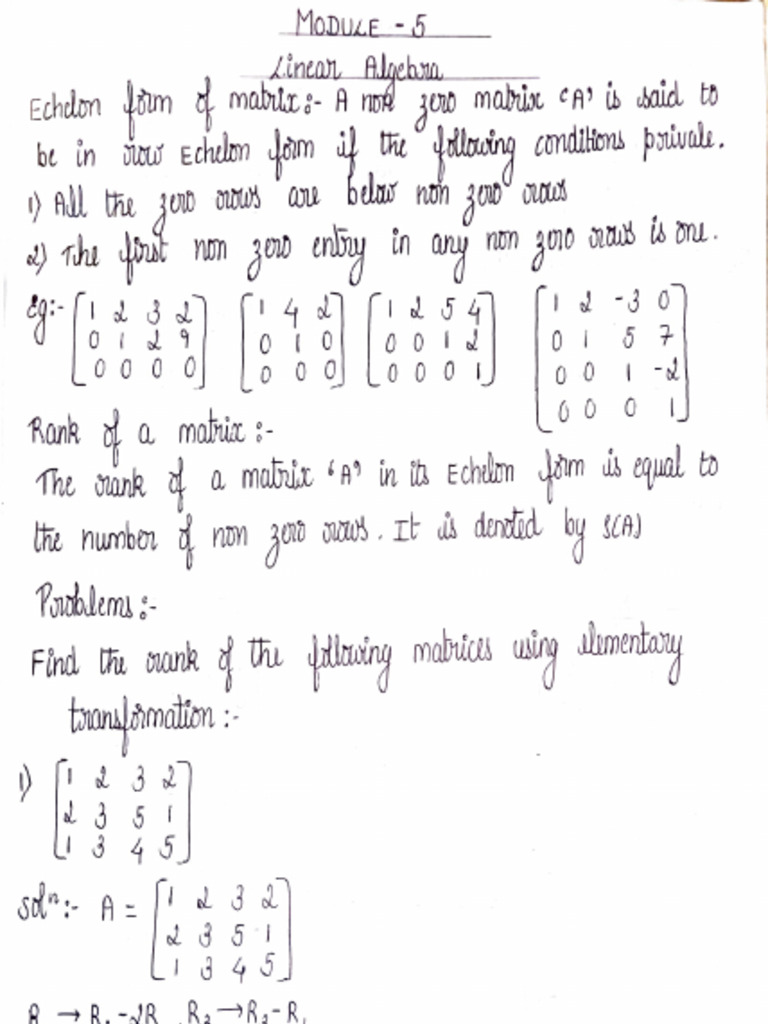 MODULE - 5
Linear Algebra
Echelon form of matrix:- A non zero matrix 'A' is said to
be in row Echelon form if the following conditions privale.
1) All the zero rows are below non zero rows
2) The first non zero entry in any non zero rows is one.
Eg:- [1 2 3 2] [1 4 2] [1 2 5 4] [1 2 -3 0]
[0 1 2 9] [0 1 0] [0 0 1 2] [0 1 5 7]
[0 0 0 0] [0 0 0] [0 0 0 1] [0 0 1 -2]
[0 0 0 1]
Rank of a matrix :-
The rank of a matrix 'A' in its Echelon form is equal to
the number of non zero rows. It is denoted by ρ(A)
Problems :-
Find the rank of the following matrices using elementary
transformation :-
1) [1 2 3 2]
[2 3 5 1]
[1 3 4 5]
Solⁿ:- A = [1 2 3 2]
[2 3 5 1]
[1 3 4 5]
R → R -2R , R₃ → R₃-R₁